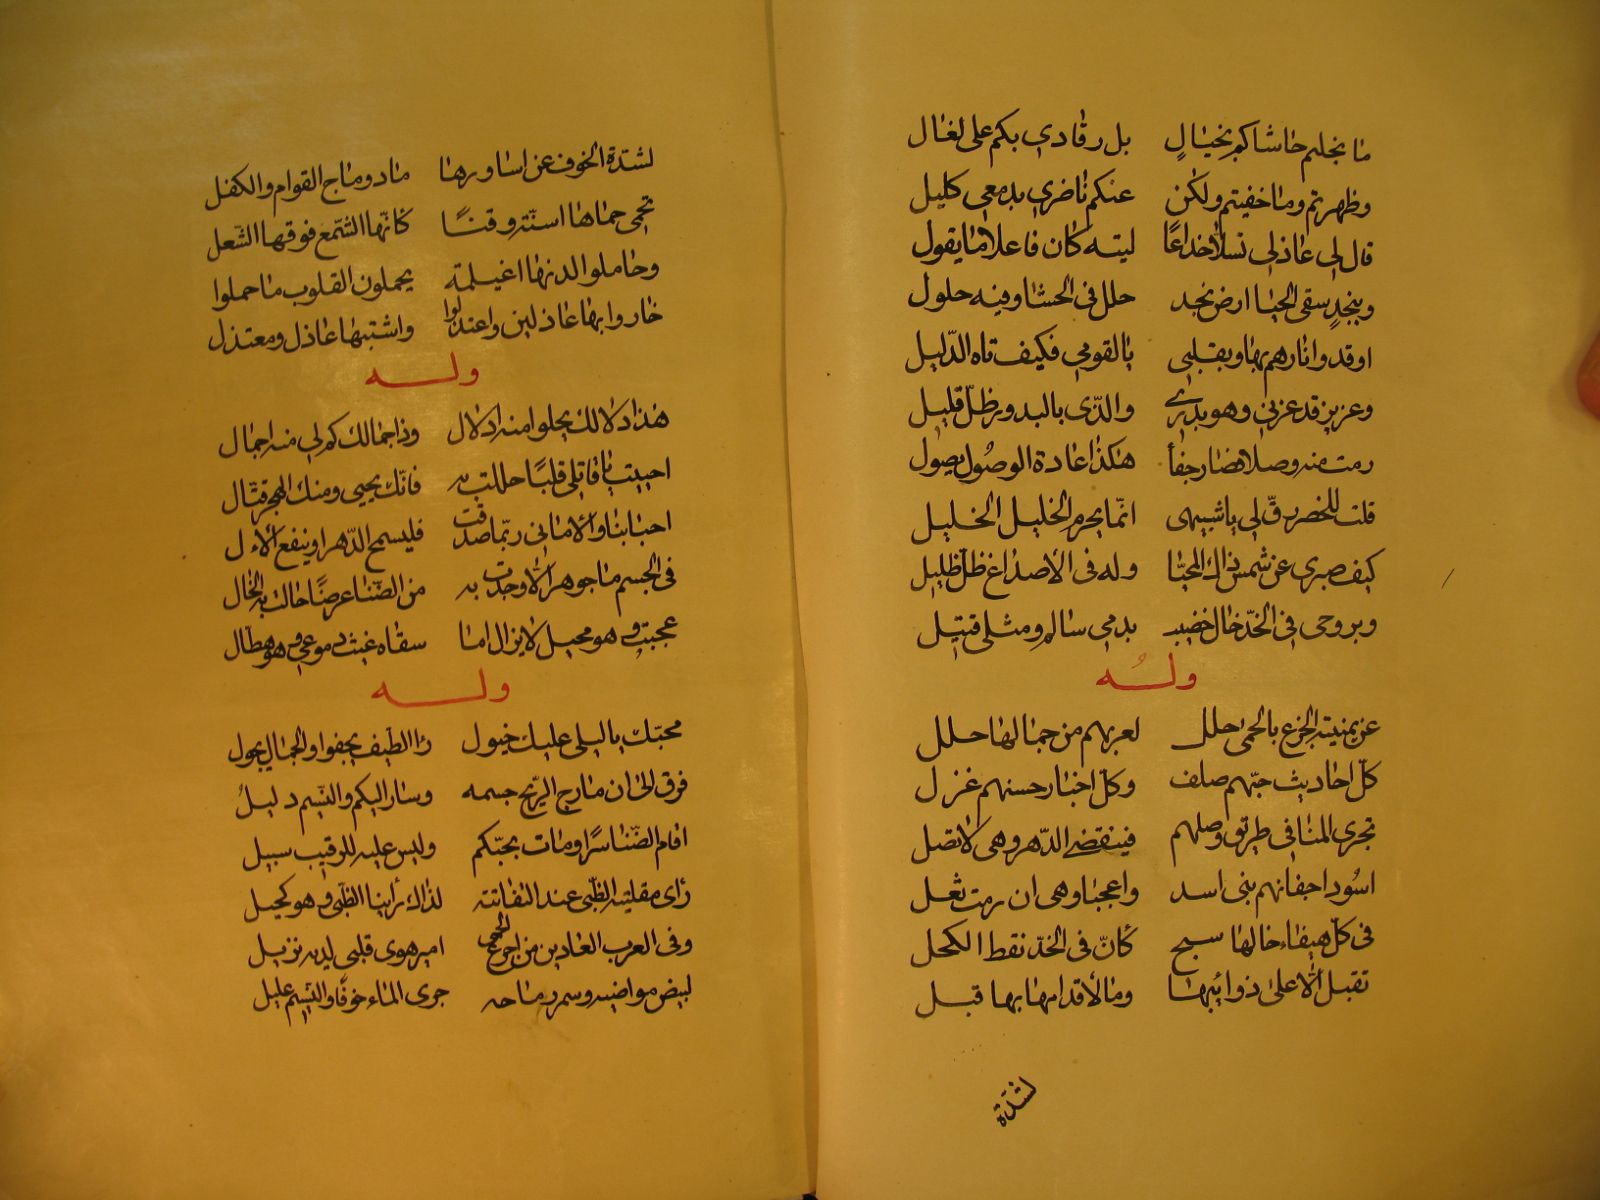 ما بخلتم حاشاكم بخيال بل رقادي بكم على لغال
وظهرتم وما خفيتم ولكن عنكم ناضري بدمعي كليل
قال لي عاذلي تسلا خداعا ليته كان فاعلا ما يقول
وبنجد سقى الحيا ارض نجد حلل في الحشا وفيه حلول
اوقدوا نارهم بها وبقلبي يا لقومي فكيف تاه الدليل
وعزيز قد عزني وهو بدري والذي بالبدور ظل قليل
رمت منه وصلا فصار جفأ هكذا عادة الوصول يصول
قلت للخصر رق لي يا شبيهي انما يحرم الخليل الخليل
كيف صبري عن شمس ذاك المحيا وله في الأصداغ ظل ظليل
وبروحي في الخد خال خضيب بدمي سالم ومثلي قتيل
وله
عز بمنيته الجزع بالحمى حلل لعربهم من جمالها حلل
كل احاديث حبهم صلف وكل اخبار حسنهم غزل
تجري المنا في طريق وصلهم فينقضي الدهر وهي لا تصل
اسود اجفانهم بني اسد واعجبا وهي ان رمت ثعل
في كل هيفاء خالها سبج كأن في الخد نقط الكحل
تقبل الأعلى ذوائبها وما لأقدامها بها قبل
لشدة
لشدة الخوف عن اساورها ماد وماج القوام والكفل
تحمى حماها اسنة وقنا كانها الشمع فوقها الشعل
وحاملوا لدنها اغيلمة يحملون القلوب ما حملوا
خاروا بها عاذلين واعتدلوا واشتبها عاذل ومعتذل
وله
هذا دلالك يحلوا منه ادلال وذا جمالك كم لي منه اجمال
احييت يا قاتلي قلبا حللت به فانك يحيى ومنك الهجر قتال
احبابنا والأماني ربما صدقت فليسمح الدهر او ينفع الأءل
في الجسم ما جوهر الا وجدت به من الضنا عرضا حالت به الخال
عجبت وهو محيل لا يزال اما سقاه غيث دموعي وهو هطال
وله
محبك يا ليلى عليك خيول رأ الطيف يجفوا والخيال يجول
فرق الى ان مازج الريح جسمه وسار اليكم والنسيم دليل
اقام الضنا سرا ومات بحبكم وليس عليه للرقيب سبيل
رأى مقلتيه الظبي عند التفاتته لذاك رأينا الظبي وهو كحيل
وفي العرب الغادين من اجرع الحمى امير هوى قلبي لديه نزيل
لبيض مواضيه وسمر رماحه جرى الماء خوفا والنسيم عليل